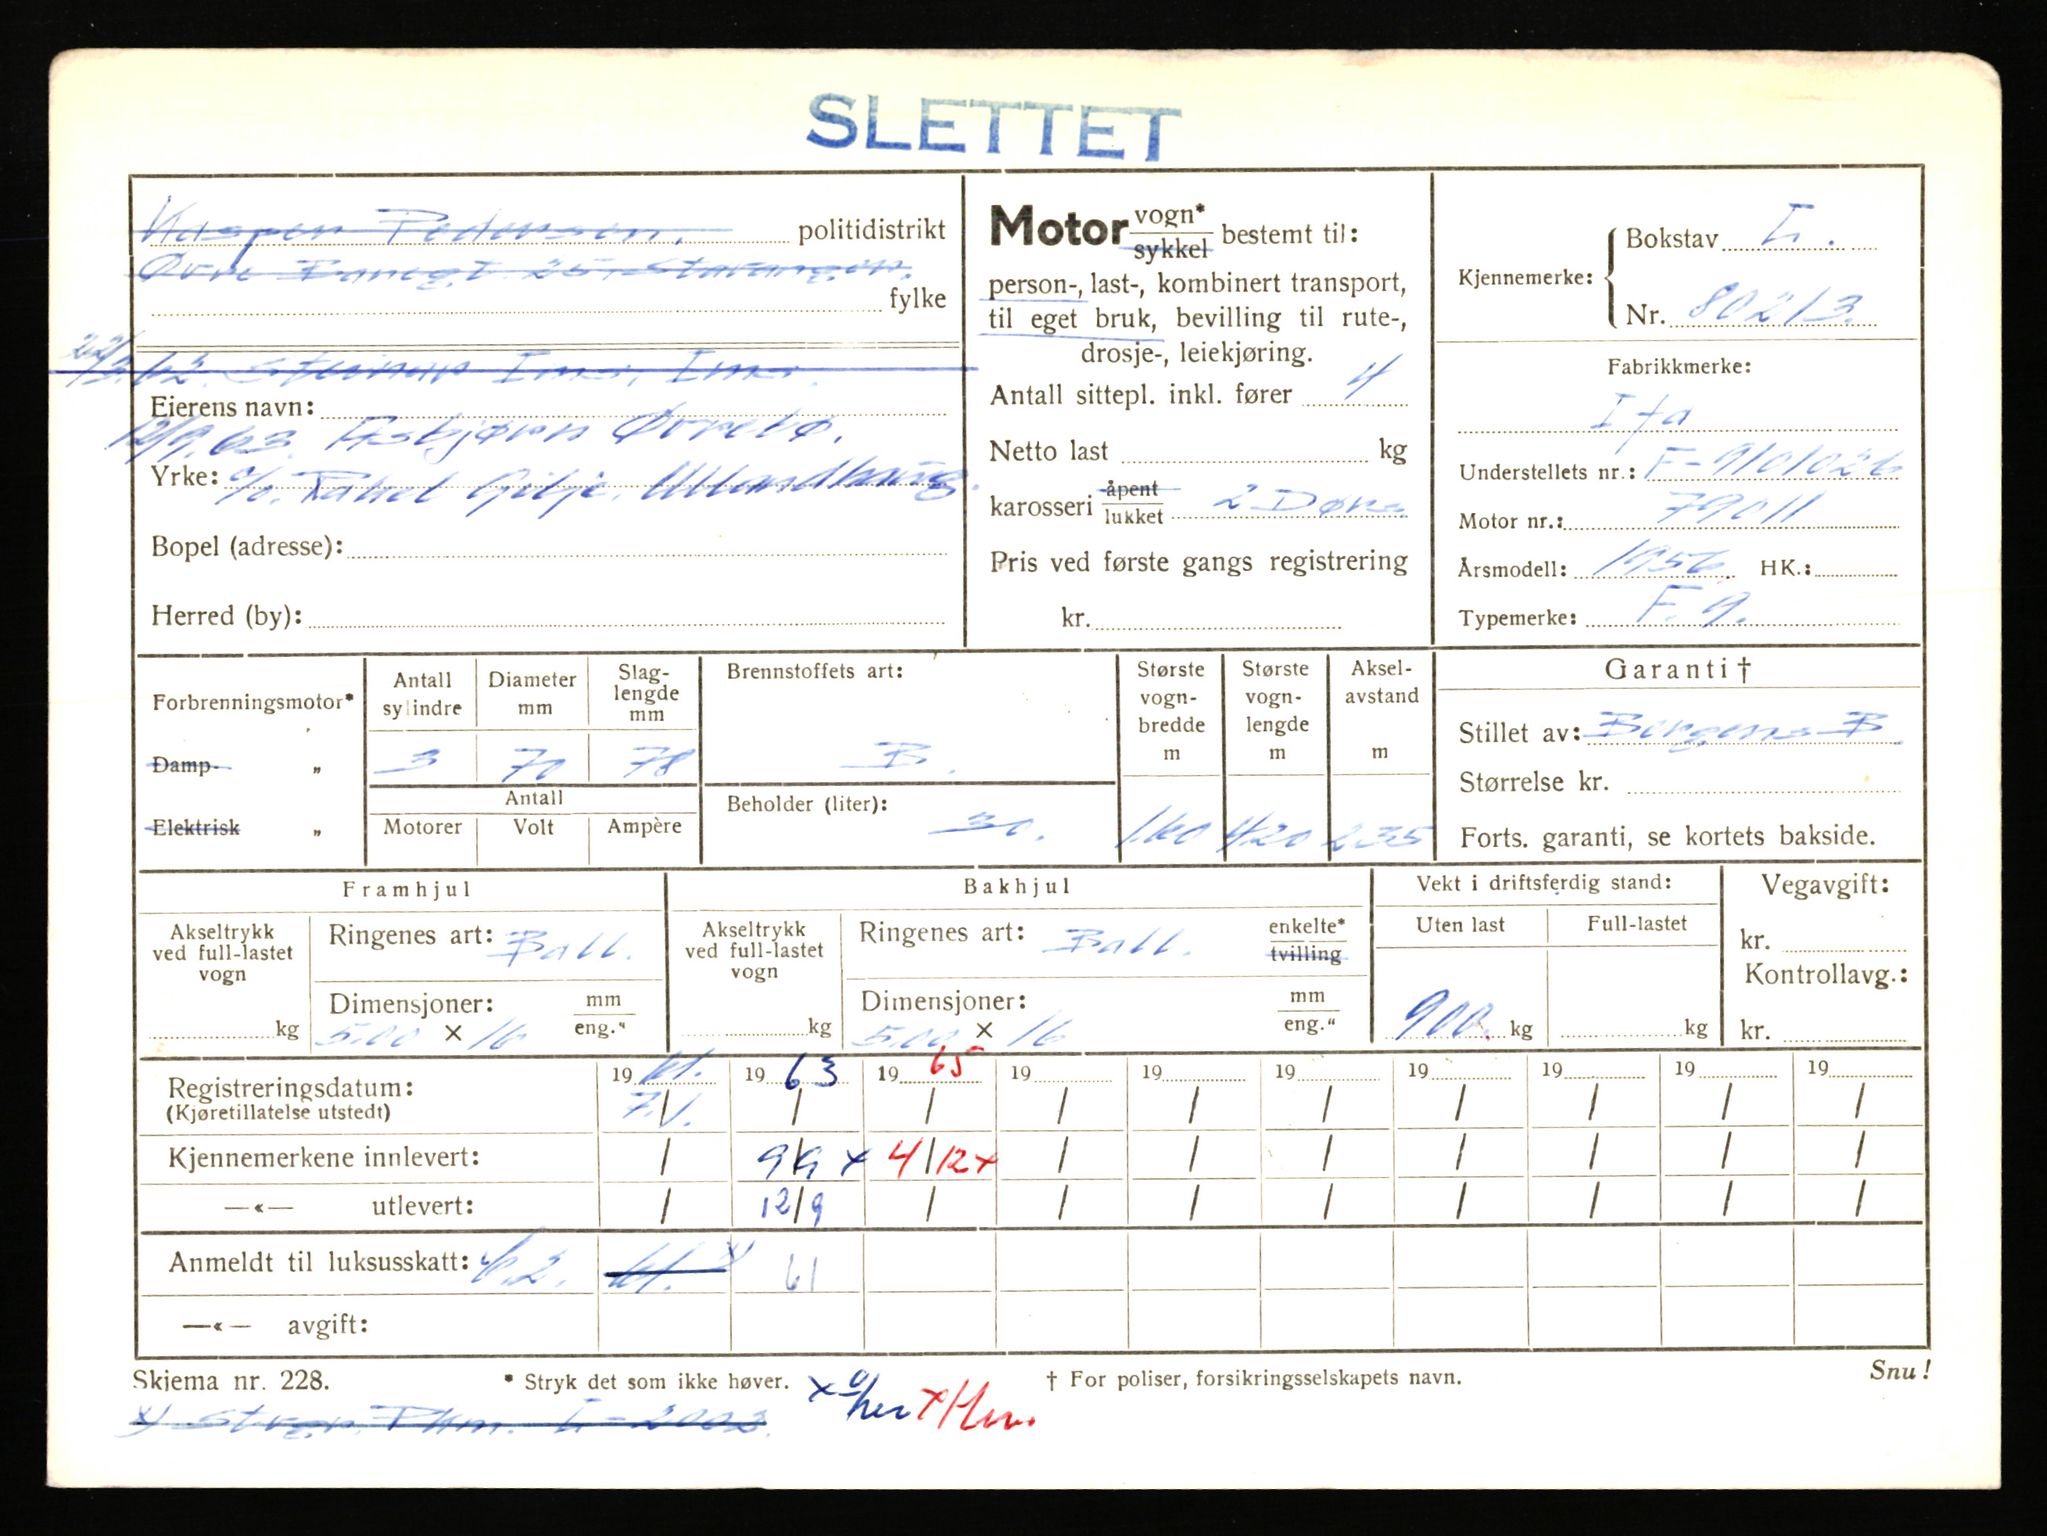 SLETTET
Kasper Pedersen. politidistrikt
Øvre Banegt 25, Stavanger.
fylke
22/3.62. Steinar Ims, Ims.
Eierens navn:
12/9.63. Asbjørn Øvrebø.
Yrke: c/o. Rakel Gilje. Ullandhaug.
Bopel (adresse):
Herred (by):
Motor vogn*
sykkel bestemt til:
person-, last-, kombinert transport,
til eget bruk, bevilling til rute-,
drosje-, leiekjøring.
Antall sittepl. inkl. fører 4
Netto last kg
karosseri åpent
lukket 2 Dørs
Pris ved første gangs registrering
kr.
Kjennemerke: Bokstav L.
Nr. 80213.
Fabrikkmerke:
Ifa
Understellets nr.: F-9101026
Motor nr.: 79011
Årsmodell: 1956. HK.:
Typemerke: F. 9.
Forbrenningsmotor*
Damp- „
Elektrisk „
Antall sylindre Diameter mm Slag-lengde mm
3 70 78
Antall
Motorer Volt Ampère
Brennstoffets art:
B.
Beholder (liter):
30.
Største vogn-bredde m
1.60
Største vogn-lengde m
420
Aksel-avstand m
235
Garanti †
Stillet av: Bergens B
Størrelse kr.
Forts. garanti, se kortets bakside.
Framhjul
Akseltrykk ved full-lastet vogn
kg
Ringenes art: Ball.
Dimensjoner: mm
5.00 × 16 eng."
Bakhjul
Akseltrykk ved full-lastet vogn
kg
Ringenes art: Ball. enkelte*
tvilling
Dimensjoner: mm
5.00 × 16 eng."
Vekt i driftsferdig stand:
Uten last Full-lastet
900. kg kg
Vegavgift:
kr.
Kontrollavg.:
kr.
Registreringsdatum: 19 61. 19 63 19 65 19 19 19 19 19 19 19
(Kjøretillatelse utstedt) 7/1. / / / / / / / / /
Kjennemerkene innlevert: / 9/9 x 4/12 x / / / / / / /
—«— utlevert: / 12/9 / / / / / / / /
Anmeldt til luksusskatt: 62. 61. x) 61
—«— avgift:
Skjema nr. 228. * Stryk det som ikke høver. † For poliser, forsikringsselskapets navn. Snu!
x) Str. Pkm. L-2002.